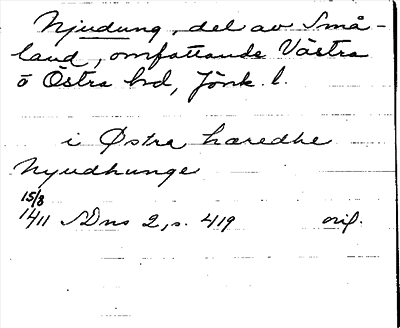 Njudung, del av Små-
land, omfattande Västra
o Östra hd, Jönk. l.
i Østra haredhe
Nyudhunge
15/8
1411 SDns 2, s. 419 orig.